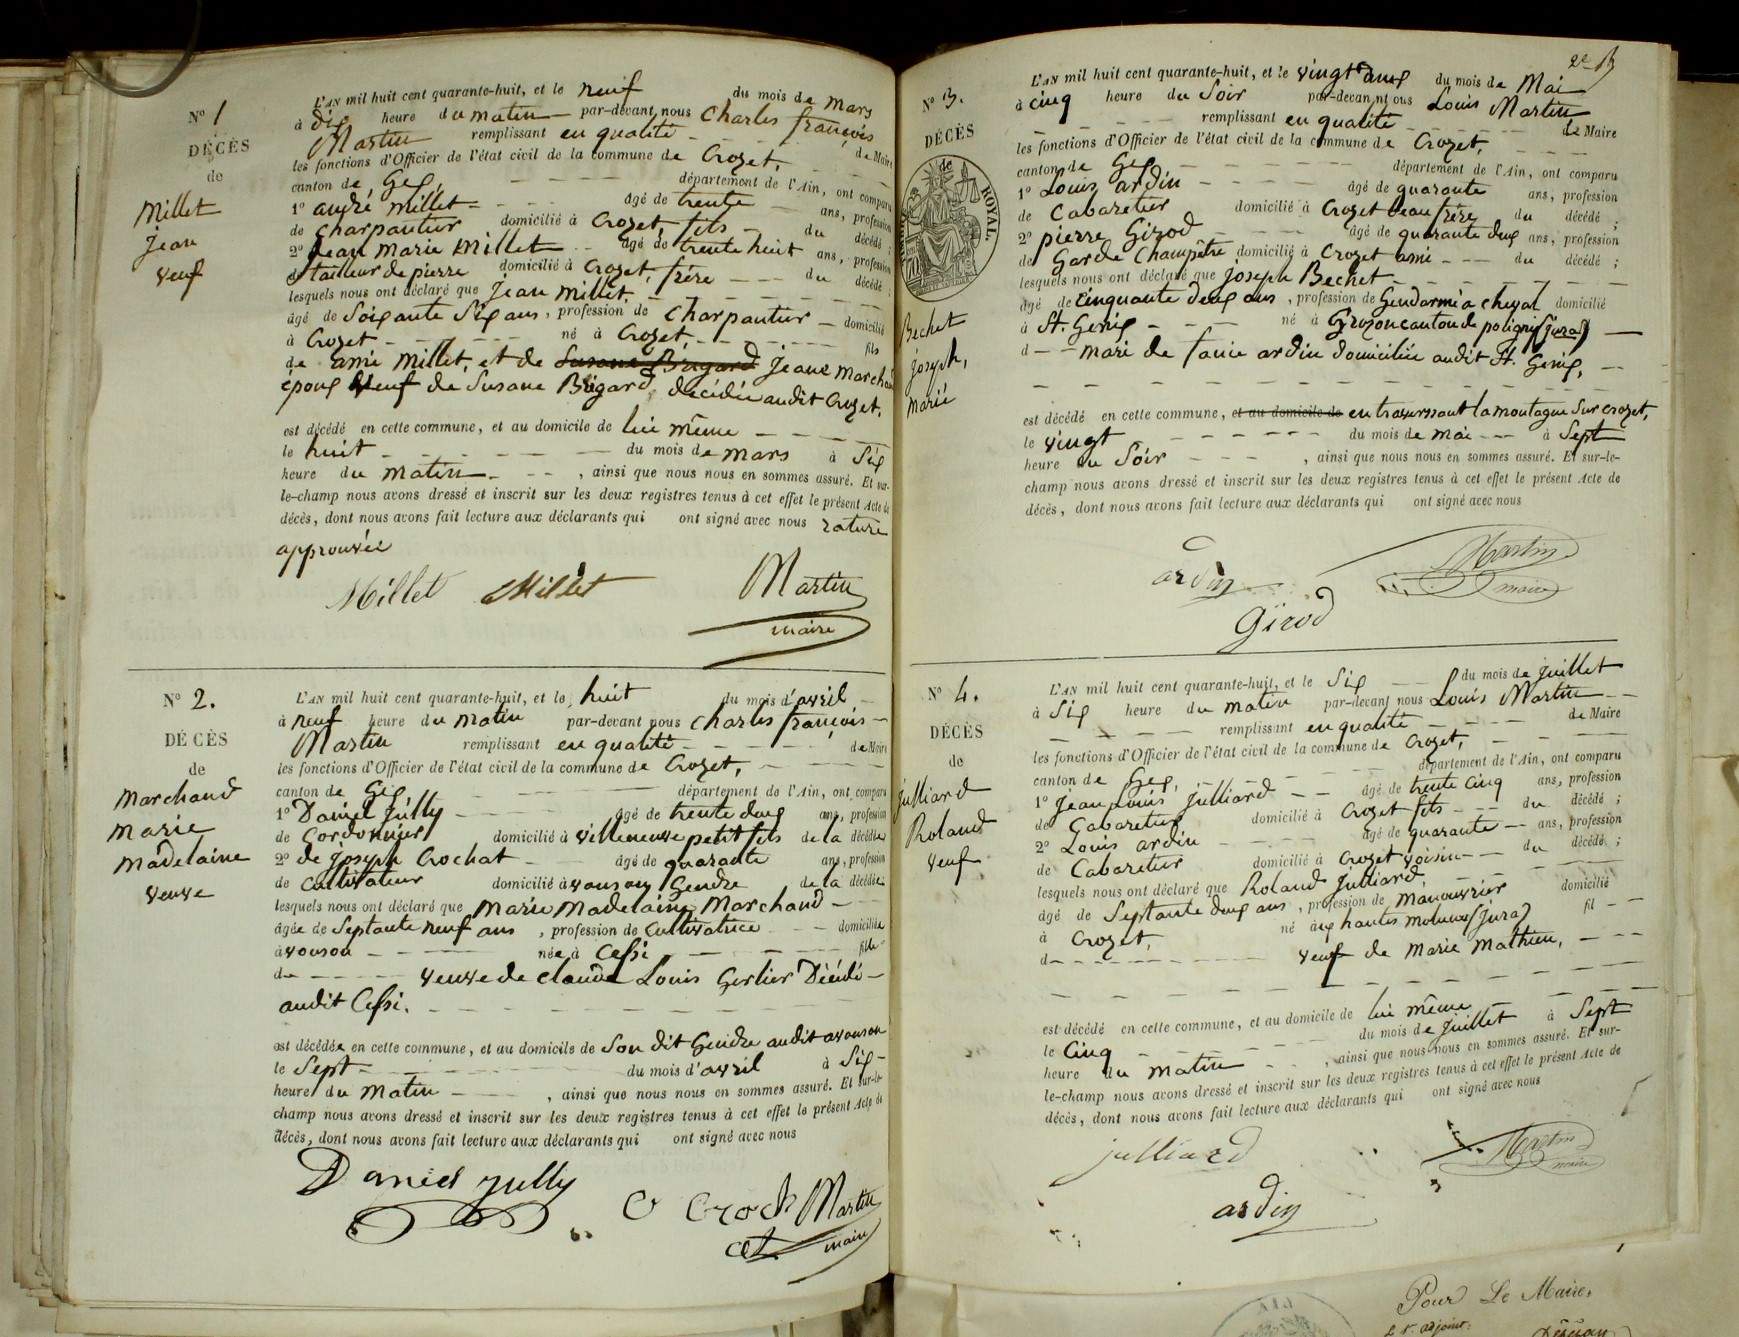 N° 1
DÉCÈS
de
Millet
jean
veuf
L'AN mil huit cent quarante-huit, et le neuf du mois de mars
à dix heure du matin par-devant nous Charles françois
Martin remplissant en qualité de Maire
les fonctions d'Officier de l'état civil de la commune de Crozet,
canton de Gex, département de l'Ain, ont comparu
1° andré Millet âgé de trente ans, profession
de charpantier domicilié à Crozet, fils du décédé ;
2° Jean Marie Millet âgé de trente huit ans, profession
de tailleur de pierre domicilié à Crozet, frère du décédé ;
lesquels nous ont déclaré que Jean Millet,
âgé de Soixante Six ans, profession de Charpantier domicilié
à Crozet né à Crozet, fils
de amé Millet, et de Susane Brigard Jeane Marchand
époux veuf de Susane Brigard, décédée audit Crozet.
est décédé en cette commune, et au domicile de lui même
le huit du mois de mars à Six
heure du matin, ainsi que nous nous en sommes assuré. Et sur-
le-champ nous avons dressé et inscrit sur les deux registres tenus à cet effet le présent Acte de
décès, dont nous avons fait lecture aux déclarants qui ont signé avec nous rature
approuvée
Millet Millet Martin
maire
N° 2.
DÉCÈS
de
Marchand
Marie
Madelaine
veuve
L'AN mil huit cent quarante-huit, et le huit du mois d'avril
à neuf heure du matin par-devant nous Charles françois
Martin remplissant en qualité de Maire
les fonctions d'Officier de l'état civil de la commune de Crozet,
canton de Gex département de l'Ain, ont comparu
1° Daniel Jully âgé de trente deux ans, profession
de Cordonnier domicilié à Villeneuve petit fils de la décédée
2° de joseph Crochat âgé de quarante ans, profession
de Cultivateur domicilié à vouson Gendre de la décédée
lesquels nous ont déclaré que Marie Madelaine Marchand
âgée de Septante neuf ans, profession de Cultivatrice domiciliée
à vouson née à Cessi fille
de veuve de Claude Louis Gerlier Décédé
audit Cessi.
est décédée en cette commune, et au domicile de Son dit Gendre audit avouson
le Sept du mois d'avril à Six
heure du Matin, ainsi que nous nous en sommes assuré. Et sur-le-
champ nous avons dressé et inscrit sur les deux registres tenus à cet effet le présent Acte de
décès, dont nous avons fait lecture aux déclarants qui ont signé avec nous
Daniel Jully Crochat Martin
maire
N° 3.
DÉCÈS
de
ROYAL.
Bechet
joseph,
marié
L'AN mil huit cent quarante-huit, et le vingt deux du mois de Mai
à cinq heure du Soir par-devant nous Louis Martin,
remplissant en qualité de Maire
les fonctions d'Officier de l'état civil de la commune de Crozet,
canton de Gex département de l'Ain, ont comparu
1° Louis ardin âgé de quarante ans, profession
de Cabaretier domicilié à Crozet beaufrère du décédé ;
2° pierre Girod âgé de quarante deux ans, profession
de Garde Champêtre domicilié à Crozet ami du décédé ;
lesquels nous ont déclaré que joseph Bechet
âgé de cinquante deux ans, profession de Gendarme à cheval domicilié
à St. Genix né à Grozon canton de poligny (jura)
d mari de fanie ardin domiciliée audit St. Genix,
est décédé en cette commune, et au domicile de en traversant la montagne Sur crozet,
le vingt du mois de mai à Sept
heure du Soir, ainsi que nous nous en sommes assuré. Et sur-le-
champ nous avons dressé et inscrit sur les deux registres tenus à cet effet le présent Acte de
décès, dont nous avons fait lecture aux déclarants qui ont signé avec nous
ardin Martin
maire
Girod
N° 4.
DÉCÈS
de
julliard
Roland
veuf
L'AN mil huit cent quarante-huit, et le Six du mois de juillet
à Six heure du matin par-devant nous Louis Martin
remplissant en qualité de Maire
les fonctions d'Officier de l'état civil de la commune de Crozet,
canton de Gex, département de l'Ain, ont comparu
1° jean Louis julliard âgé de trente Cinq ans, profession
de Cabaretier domicilié à Crozet fils du décédé ;
2° Louis ardin âgé de quarante ans, profession
de Cabaretier domicilié à Crozet voisin du décédé ;
lesquels nous ont déclaré que Roland julliard
âgé de Septante deux ans, profession de manouvrier domicilié
à Crozet, né aux hautes molunes (jura) fil
d veuf de Marie Mathieu,
est décédé en cette commune, et au domicile de lui même
le Cinq du mois de juillet à Sept
heure du matin, ainsi que nous nous en sommes assuré. Et sur-
le-champ nous avons dressé et inscrit sur les deux registres tenus à cet effet le présent Acte de
décès, dont nous avons fait lecture aux déclarants qui ont signé avec nous
julliard Martin
maire
ardin
AIN
Pour Le Maire,
adjoint